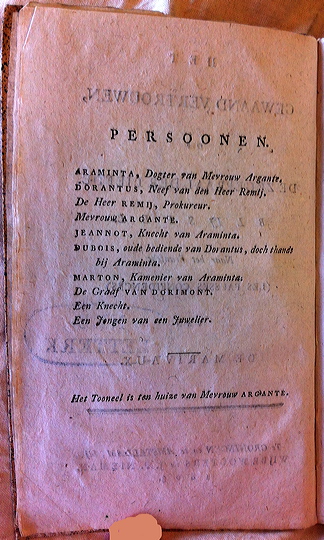 PERSOONEN.
ARAMINTA, Dogter van Mevrouw Argante.
DORANTUS, Neef van den Heer Remij.
De Heer REMIJ, Prokureur.
Mevrouw ARGANTE.
JEANNOT, Knecht van Araminta.
DUBOIS, oude bediende van Dorantus, doch thands
bij Araminta.
MARTON, Kamenier van Araminta.
De Graaf VAN DORIMONT.
Een Knecht.
Een Jongen van een Juwelier.
Het Tooneel is ten huize van Mevrouw ARGANTE.